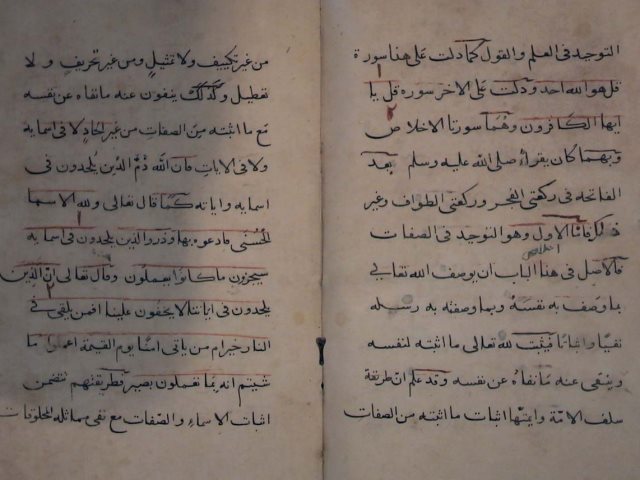 التوحيد فى العلم والقول كما دلت على هذا سورة
قل هو الله احد ودلت على الاخر سوره قل يا
ايها الكافرون وهما سورتا الاخلاص
وبهما كان يقراء صلى الله عليه وسلم بعد
الفاتحه فى ركعتى الفجر وركعتى الطواف وغير
ذلك فاما الاول وهو التوحيد فى الصفات
فالاصل فى هذا الباب ان يوصف الله تعالى
بما وصف به نفسه وبما وصفته به رسله
نفيا واثباتا فيثبت لله تعالى ما اثبته لنفسه
وينفى عنه ما نفاه عن نفسه وقد علم ان طريقة
سلف الامة وايمتها اثبات ما اثبته من الصفات
من غير تكييف ولا تمثيل ومن غير تحريف ولا
تعطيل وكذلك ينفون عنه ما نفاه عن نفسه
مع ما اثبته من الصفات من غير الحاد لا فى اسمايه
ولا فى الايات فان الله ذم الذين يلحدون فى
اسمايه واياته كما قال تعالى ولله الاسما
الحسنى فادعوه بها وذروا الذين يلحدون فى اسمايه
سيجزون ما كانوا يعملون وقال تعالى ان الذين
يلحدون فى اياتنا لا يخفون علينا افمن يلقى فى
النار خير ام من ياتى امنا يوم القيمة اعملوا ما
شيتم انه بما تعملون بصير فطريقتهم تتضمن
اثبات الاسماء والصفات مع نفى مماثلة المخلوقات